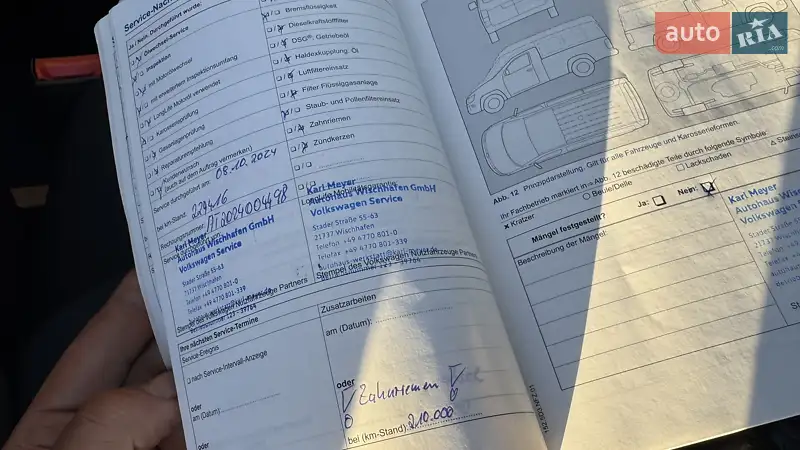 Service-Nach
Ja / Nein, Durchgeführt wurde:
Ölwechsel-Service
Inspektion
mit Motorölwechsel
mit erweitertem Inspektionsumfang
LongLife Motoröl verwendet
Karosserieprüfung
Gasanlagenprüfung
Reparaturempfehlung
Kundenwunsch
(auch auf dem Auftrag vermerken)
Service durchgeführt am: 08.10.2024
bei km-Stand: 229416
Rechnungsnummer:
Karl Meyer
Autohaus Wischhafen GmbH
Volkswagen Service
Stader Straße 55-63
21737 Wischhafen
Telefon +49 4770 801-0
Telefax +49 4770 801-339
Stempel des Volkswagen Nutzfahrzeuge Partners
Bremsflüssigkeit
Dieselkraftstofffilter
DSG®, Getriebeöl
Haldexkupplung: Öl
Luftfiltereinsatz
Filter Flüssiggasanlage
Staub- und Pollenfiltereinsatz
Zahnriemen
Zündkerzen
Karl Meyer
Autohaus Wischhafen GmbH
Volkswagen Service
Stader Straße 55-63
21737 Wischhafen
Telefon +49 4770 801-0
Telefax +49 4770 801-339
Stempel des Volkswagen Nutzfahrzeuge Partners
Ihre nächsten Service-Termine
Service-Ereignis
nach Service-Intervall-Anzeige
oder
am (Datum):
oder
Zusatzarbeiten
am (Datum):
oder
Zahnriemen
bei (km-Stand): 210.000
Abb. 12 Prinzipdarstellung. Gilt für alle Fahrzeuge und Karosserieformen.
Ihr Fachbetrieb markiert in ⇒ Abb. 12 beschädigte Teile durch folgende Symbole
× Kratzer ○ Beule/Delle □ Lackschaden △ Steinsc
Mängel festgestellt? Ja: Nein:
Beschreibung der Mängel:
Karl Meyer
Autohaus Wisch
Volkswagen Se
Stader Straße 55-
21737 Wischhafe
auto RIA
.com